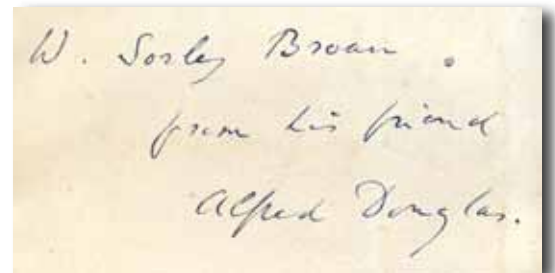 W. Sorley Brown.
from his friend
Alfred Douglas.